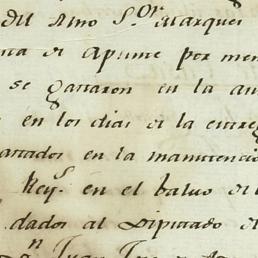 del Exmo S.or Marques
de Apunte por men
se gastaron en la
en los dias de la entre
gastados en la manutencio
Rey.s en el baluo de
dados al Diputado de
n Juan